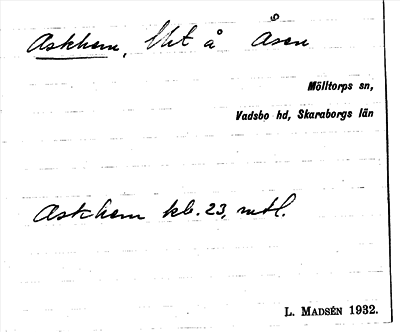 Askhem, Ukt å Åsen
Mölltorps sn,
Vadsbo hd, Skaraborgs län
Askhem kb. 23, mtl.
L. MADSÉN 1932.